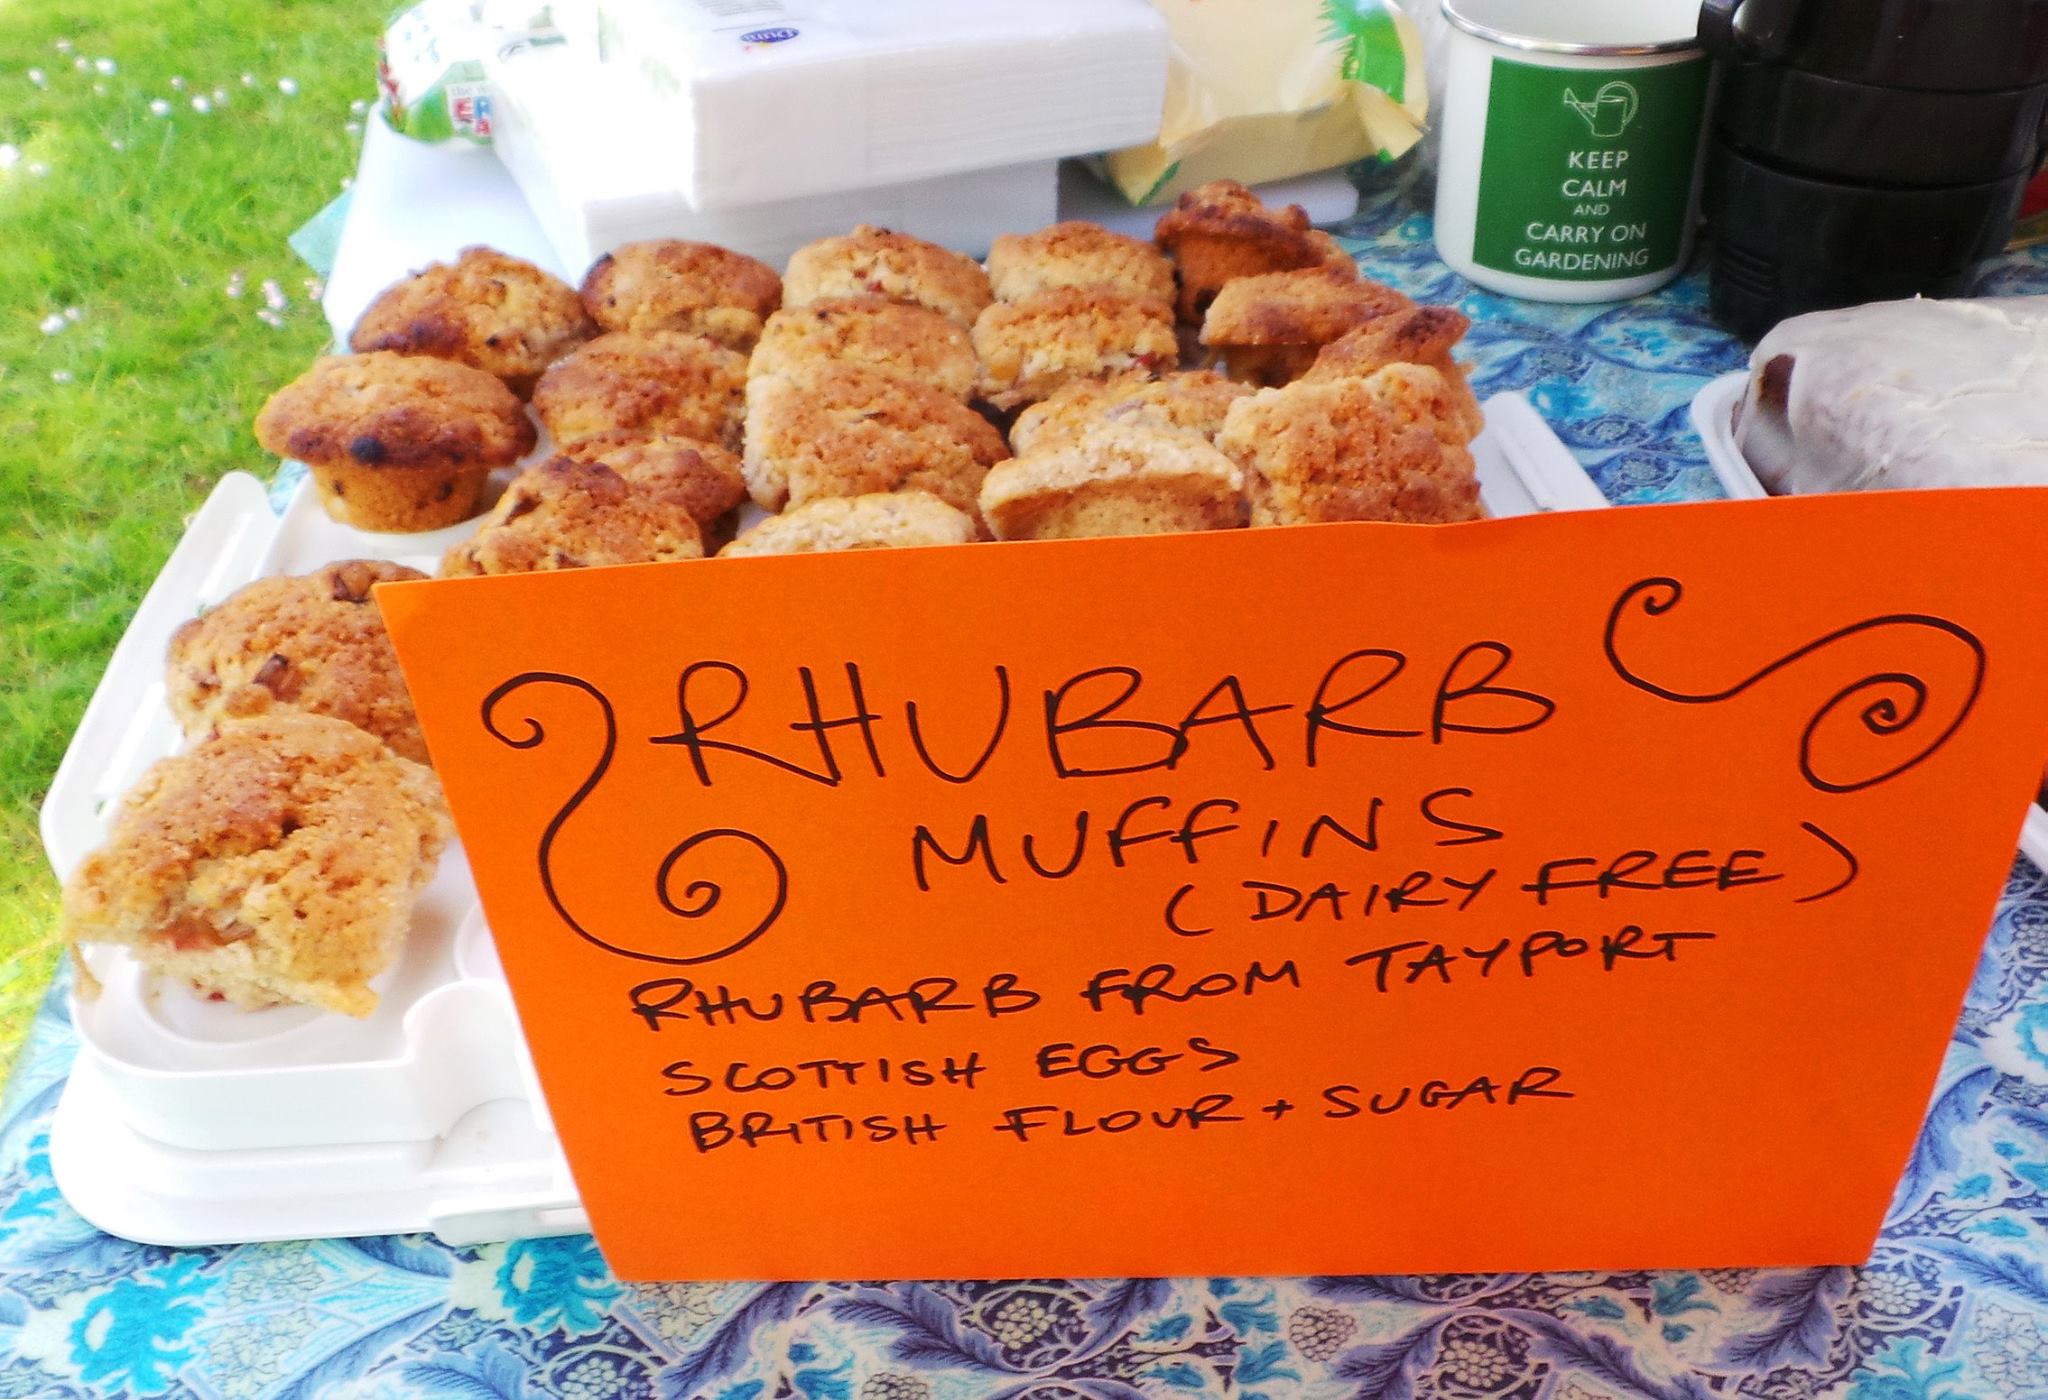 Duni
KEEP
CALM
AND
CARRY ON
GARDENING
RHUBARB
MUFFINS
(DAIRY FREE)
RHUBARB FROM TAYPORT
SCOTTISH EGGS
BRITISH FLOUR + SUGAR